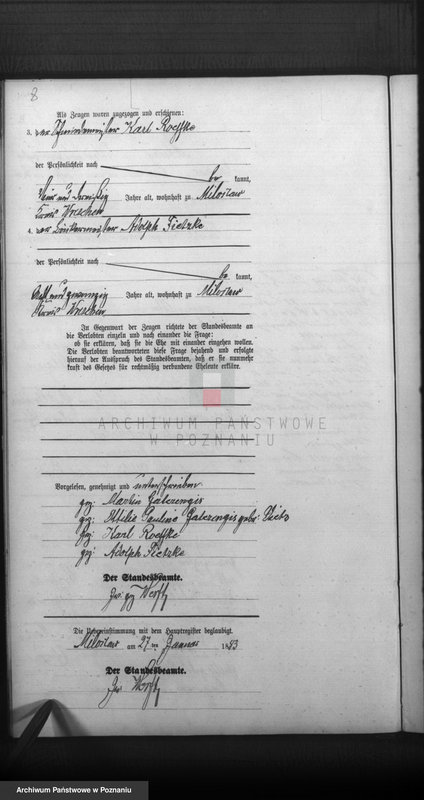 8
Als Zeugen waren zugezogen und erschienen:
3. der Karl Roeffke
der Persönlichkeit nach
be kannt,
und dreißig Jahre alt, wohnhaft zu Miloslaw
Kreis Wreschen
4. der Adolph Fietzke
der Persönlichkeit nach
be kannt,
und zwanzig Jahre alt, wohnhaft zu Miloslaw
Kreis Wreschen
In Gegenwart der Zeugen richtete der Standesbeamte an
die Verlobten einzeln und nach einander die Frage:
ob sie erklären, daß sie die Ehe mit einander eingehen wollen.
Die Verlobten beantworteten diese Frage bejahend und erfolgte
hierauf der Ausspruch des Standesbeamten, daß er sie nunmehr
kraft des Gesetzes für rechtmäßig verbundene Eheleute erkläre.
ARCHIWUM PAŃSTWOWE
W POZNANIU
Vorgelesen, genehmigt und unterschrieben
gez: Martin
gez: Pauline geb:
gez: Karl Roeffke
gez: Adolph Fietzke
Der Standesbeamte.
gez
Die Uebereinstimmung mit dem Hauptregister beglaubigt.
Miloslaw am 27 ten Januar 1883
Der Standesbeamte.
Archiwum Państwowe w Poznaniu